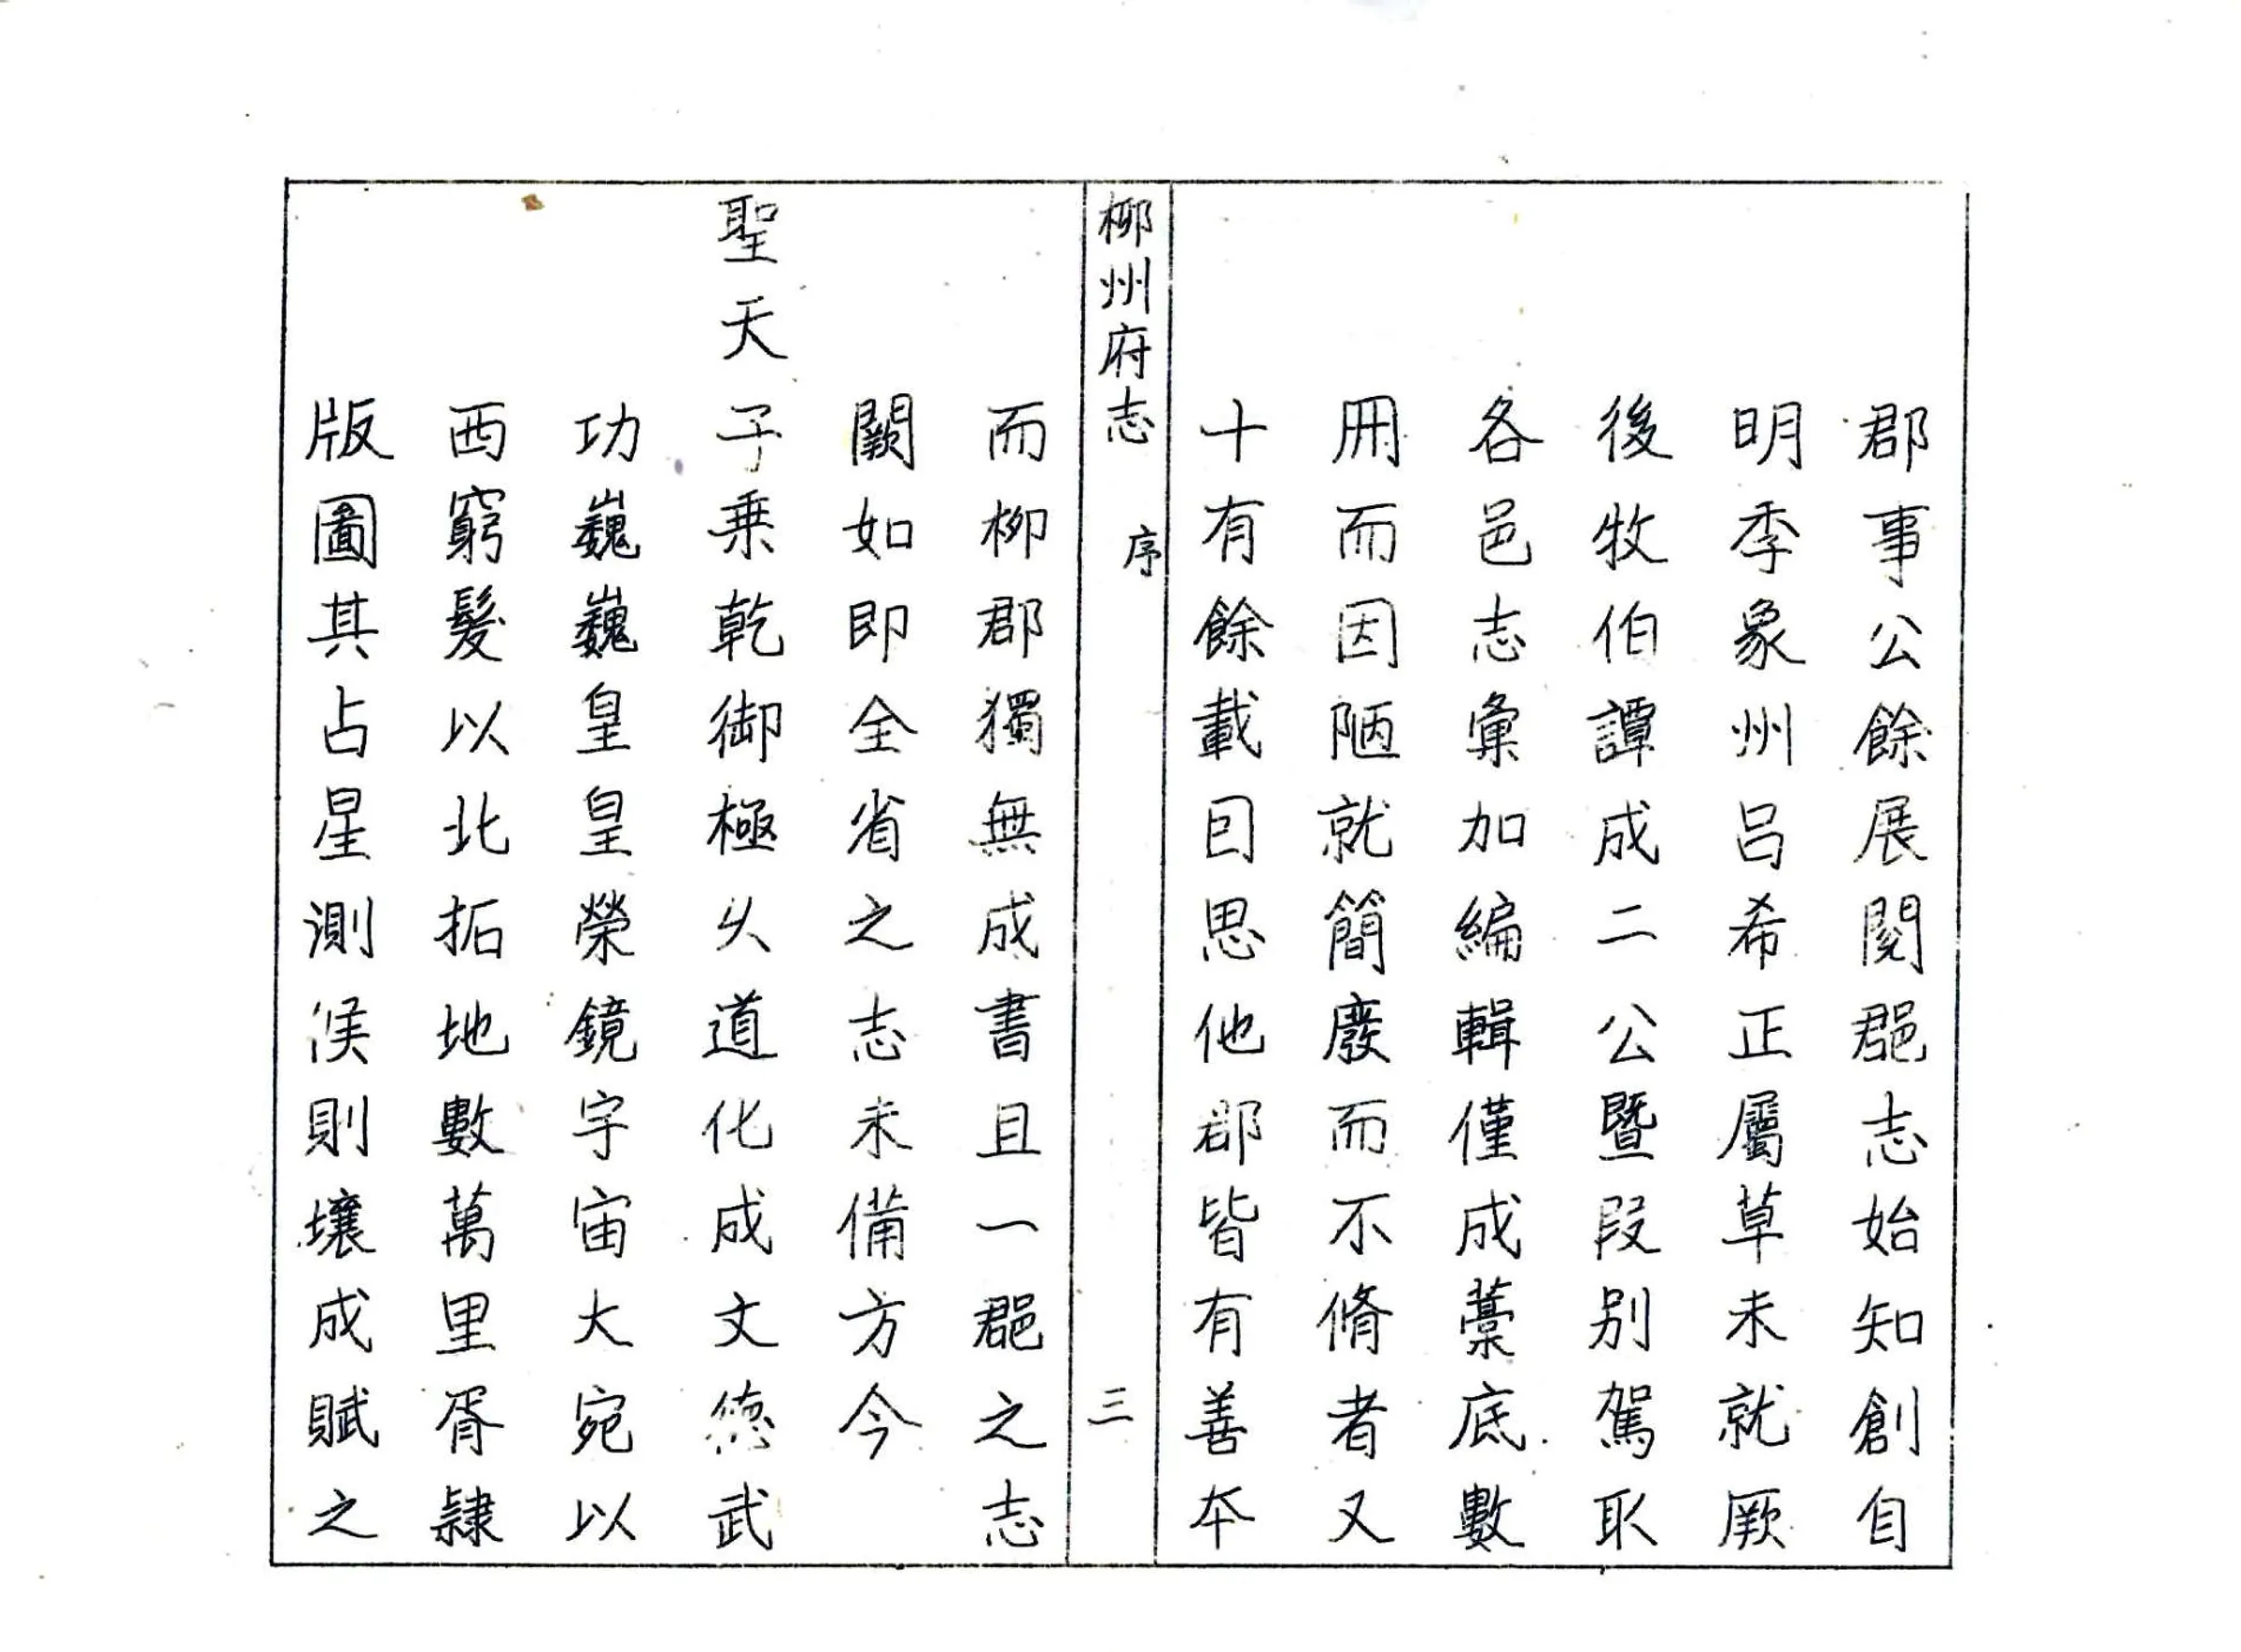 郡事公餘展閱郡志始知創自
明季象州呂希正屬草未就厥
後牧伯譚成二公暨段别駕取
各邑志彙加編輯僅成藁底數
冊而因陋就簡廢而不脩者又
十有餘載因思他郡皆有善本
柳州府志 序 三
而柳郡獨無成書且一郡之志
闕如即全省之志未備方今
聖天子乗乾御極久道化成文德武
功巍巍皇皇榮鏡宇宙大宛以
西窮髮以北拓地數萬里胥隷
版圖其占星測候則壤成賦之